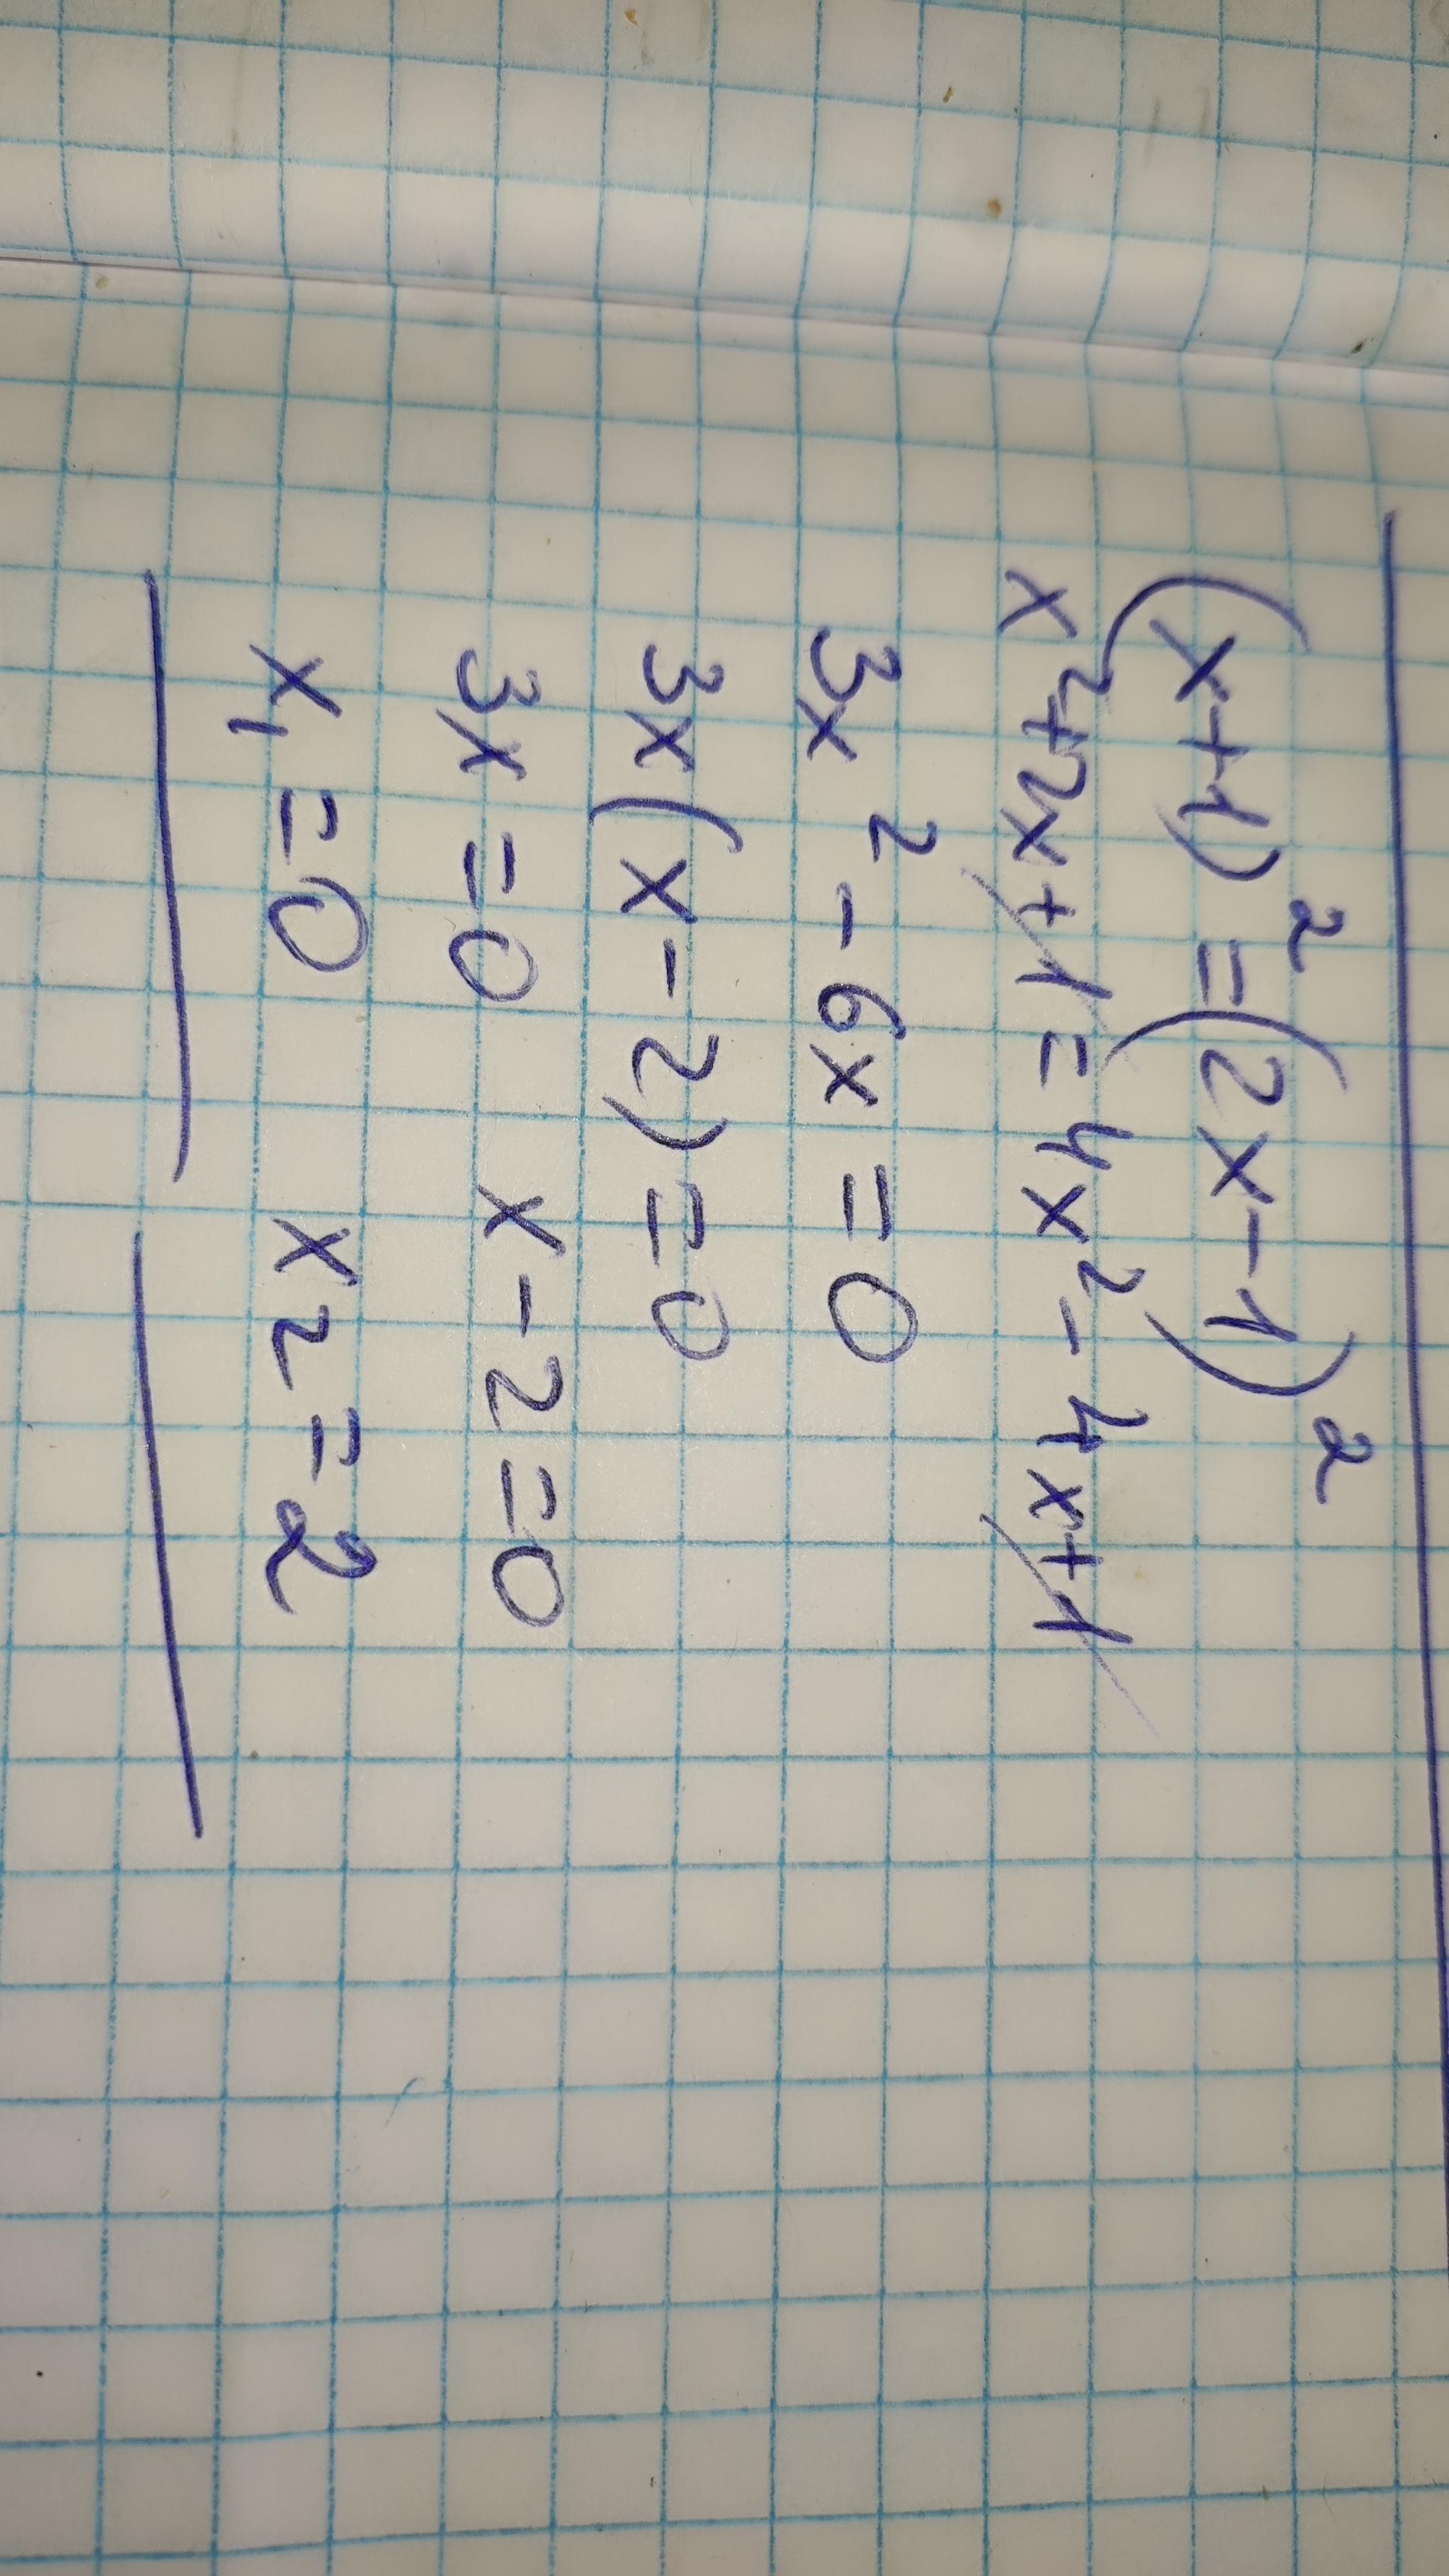 (x+1)² = (2x-1)²
x²+2x+1 = 4x²-4x+1
3x² - 6x = 0
3x(x-2) = 0
3x = 0 x - 2 = 0
x₁ = 0 x₂ = 2